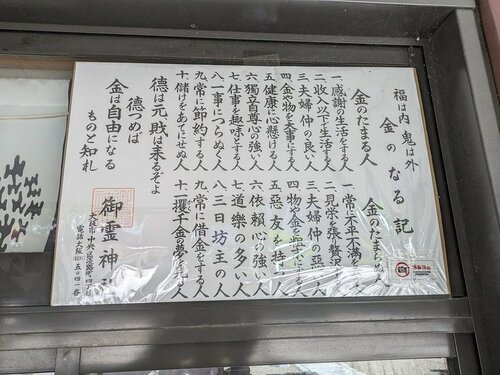 福は内 鬼は外
金のなる記
金のたまる人
一、感謝の生活をする人
二、收入以下生活する人
三、夫婦仲の良い人
四、金や物を大事にする人
五、健康に心懸ける人
六、獨立自尊心の強い人
七、仕事を趣味とする人
八、一事につらぬく人
九、常に節約する人
十、儲けをあてにせぬ人
金のたまらぬ人
一、常に不平不満を
二、見栄を張り贅沢
三、夫婦仲の惡い人
四、物や金を
五、惡友を持つ人
六、依賴心の強い人
七、道樂の多い人
八、三日坊主の人
九、常に借金をする人
十、一攫千金の夢をみる人
德は元 財は来るぞよ
德つめば
金は自由になる
ものと知れ
御霊神社
大阪市中央区淡路町四丁目
電話大阪
五〇四一番